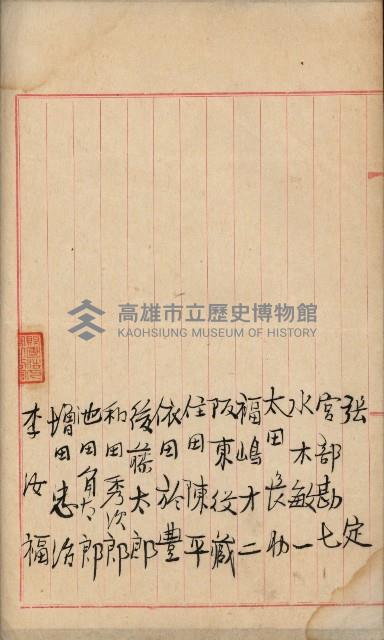 張定
宮部勘七
水木敏一
太田長助
福嶋才二
阪東役藏
住田陳平
依田於豊
後藤太郎
和田秀次郎
池田角太郎
増田忠治
李汝福
高雄市立歷史博物館
KAOHSIUNG MUSEUM OF HISTORY